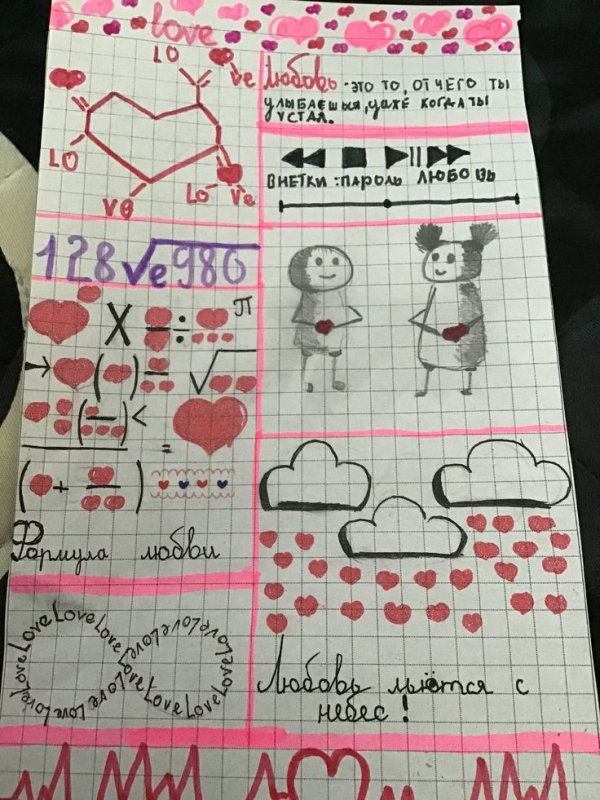 love
LO
Ve
LO
VE
Lo
Ve
Любовь -это то, от чего ты
улыбаешься, даже когда ты
устал.
ВНЕТКИ :ПАРОЛЬ ЛЮБОВЬ
128√e980
X ÷ П
( ) √
( ) <
=
( + )
Формула любви
Love Love Love Love Love Love Love Love Love Love Love Love Love Love
Любовь льётся с
небес!